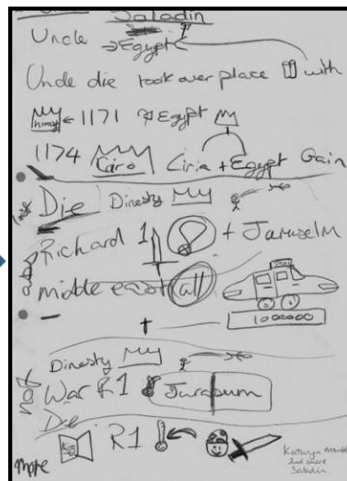 Saladin
Uncle → Egypt
Uncle die took over place with
himself ← 1171 Egypt
1174 Cairo Ciria + Egypt Gain
Die Dinesty
Richard 1 + Jaruselm
Middle east all
1000000
Dinesty
War R1 Jurasum
Die
R1
more
Kathryn
2nd share
Saladin